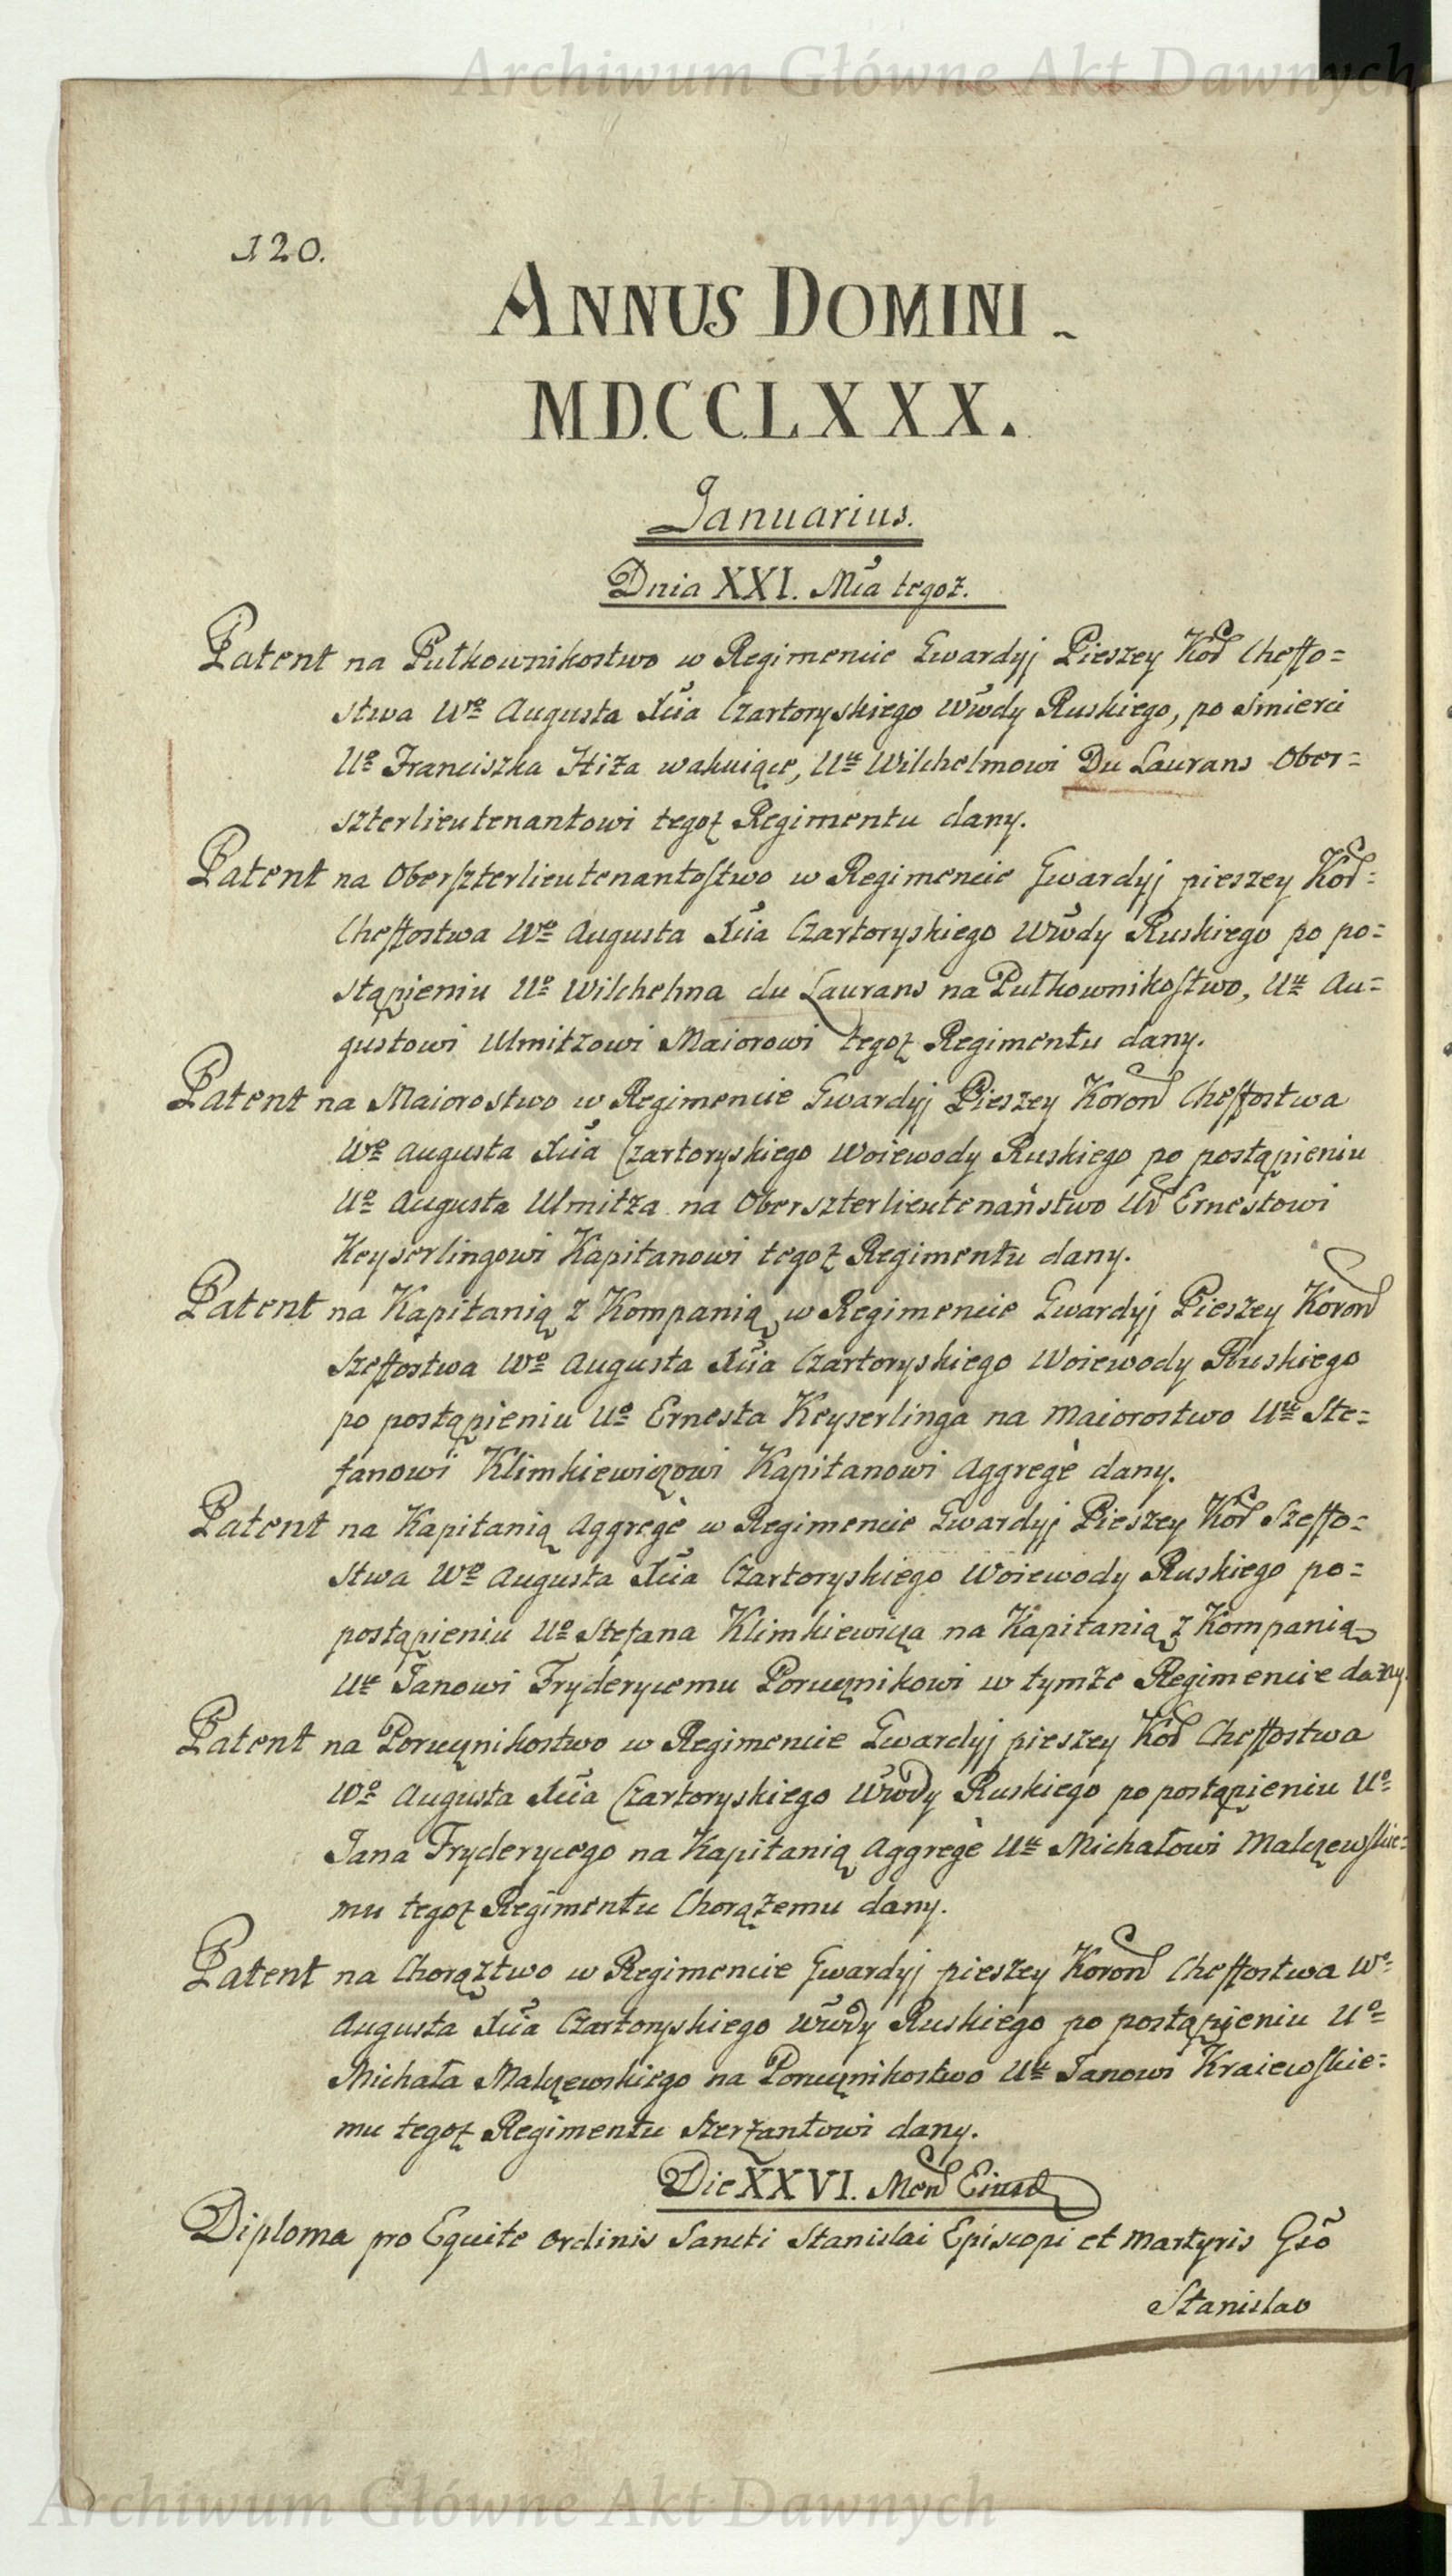 Archiwum Główne Akt Dawnych
120.
ANNUS DOMINI
MD.CC.LXXX.
Januarius.
Dnia XXI. Mca tegoż.
Patent na Pułkownikostwo w Regimencie Gwardyj Pieszey Kor Cheffo=
stwa Wo Augusta Xcia Czartoryskiego Wwdy Ruskiego, po śmierci
Uo Franciszka Hiża wakuiące, Uu Wilchelmowi Du Laurans Ober=
szterlieutenantowi tegoż Regimentu dany.
Patent na Oberszterlieutenantostwo w Regimencie Gwardyj pieszey Kor=
Cheffostwa Wo Augusta Xcia Czartoryskiego Wwdy Ruskiego po po=
stąpieniu Uo Wilchelma du Laurans na Pułkownikostwo, Uu Au=
gustowi Ulmitzowi Maiorowi tegoż Regimentu dany.
Patent na Maiorostwo w Regimencie Gwardyj Pieszey Koron Cheffostwa
Wo Augusta Xcia Czartoryskiego Woiewody Ruskiego po postąpieniu
Uo Augusta Ulmitza na Oberszterlieutenaństwo Ur Ernestowi
Keyserlingowi Kapitanowi tegoż Regimentu dany.
Patent na Kapitanią z Kompanią w Regimencie Gwardyj Pieszey Koron
Szeffostwa Wo Augusta Xcia Czartoryskiego Woiewody Ruskiego
po postąpieniu Uo Ernesta Keyserlinga na Maiorostwo Uu Ste=
fanowi Klimkiewiczowi Kapitanowi Aggregè dany.
Patent na Kapitanią Aggregè w Regimencie Gwardyj Pieszey Kor Szeffo=
stwa Wo Augusta Xcia Czartoryskiego Woiewody Ruskiego po=
postąpieniu Uo Stefana Klimkiewicza na Kapitanią z Kompanią
Uu Janowi Fryderycemu Porucznikowi w tymże Regimencie dany.
Patent na Porucznikostwo w Regimencie Gwardyj pieszey Kor Cheffostwa
Wo Augusta Xcia Czartoryskiego Wwdy Ruskiego po postąpieniu Uo
Jana Fryderycego na Kapitanią Aggregè Uu Michałowi Malczewskie=
mu tegoż Regimentu Chorążemu dany.
Patent na Chorąztwo w Regimencie Gwardyj pieszey Koron Cheffostwa Wo
Augusta Xcia Czartoryskiego Wwdy Ruskiego po postąpieniu Uo
Michała Malczewskiego na Porucznikostwo Uu Janowi Kraiewskie=
mu tegoż Regimentu Szerżantowi dany.
Die XXVI. Men Eiusd
Diploma pro Equite Ordinis Sancti Stanislai Episcopi et Martyris Gso
Stanislao
Archiwum Główne Akt Dawnych